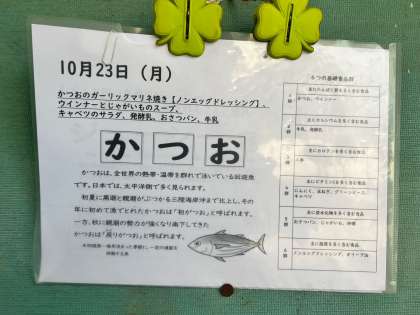 10月23日（月）
かつおのガーリックマリネ焼き【ノンエッグドレッシング】、
ウインナーとじゃがいものスープ、
キャベツのサラダ、発酵乳、おさつパン、牛乳
かつお
かつおは、全世界の熱帯・温帯を群れで泳いでいる回遊魚
です。日本では、太平洋側で多く見られます。
初夏に黒潮と親潮がぶつかる三陸海岸沖まで北上し、その
年に初めて漁でとれたかつおは「初がつお」と呼ばれます。
一方、秋に親潮の勢力が強くなり南下してきた
かつおは「戻りがつお」と呼ばれます。
6つの基礎食品群
1群
主にたんぱく質を多く含む食品
かつお、ウインナー
2群
主にカルシウムを多く含む食品
牛乳、発酵乳
3群
主にカロテンを多く含む食品
4群
主にビタミンCを多く含む食品
にんにく、玉ねぎ、グリーンピース、
キャベツ
5群
主に炭水化物を多く含む食品
おさつパン、じゃがいも、砂糖
6群
主に脂質を多く含む食品
ノンエッグドレッシング、オリーブ油